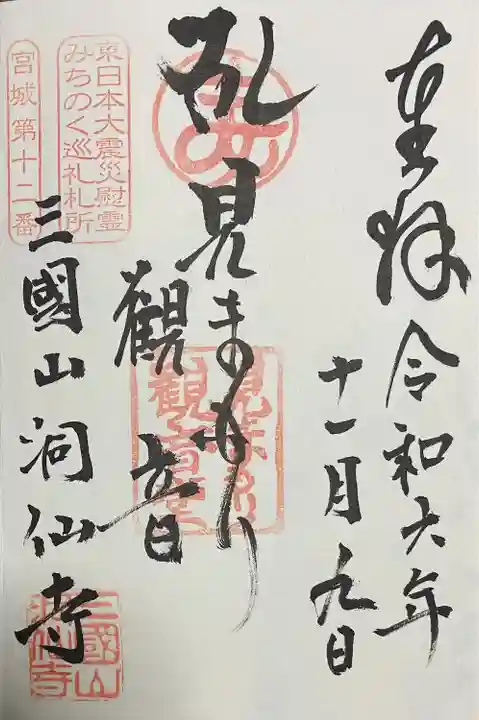 奉拝
令和六年
十一月九日
乳見まもり
観音
東日本大震災慰霊
みちのく巡礼札所
宮城第十二番
三國山洞仙寺
三國山
洞仙寺